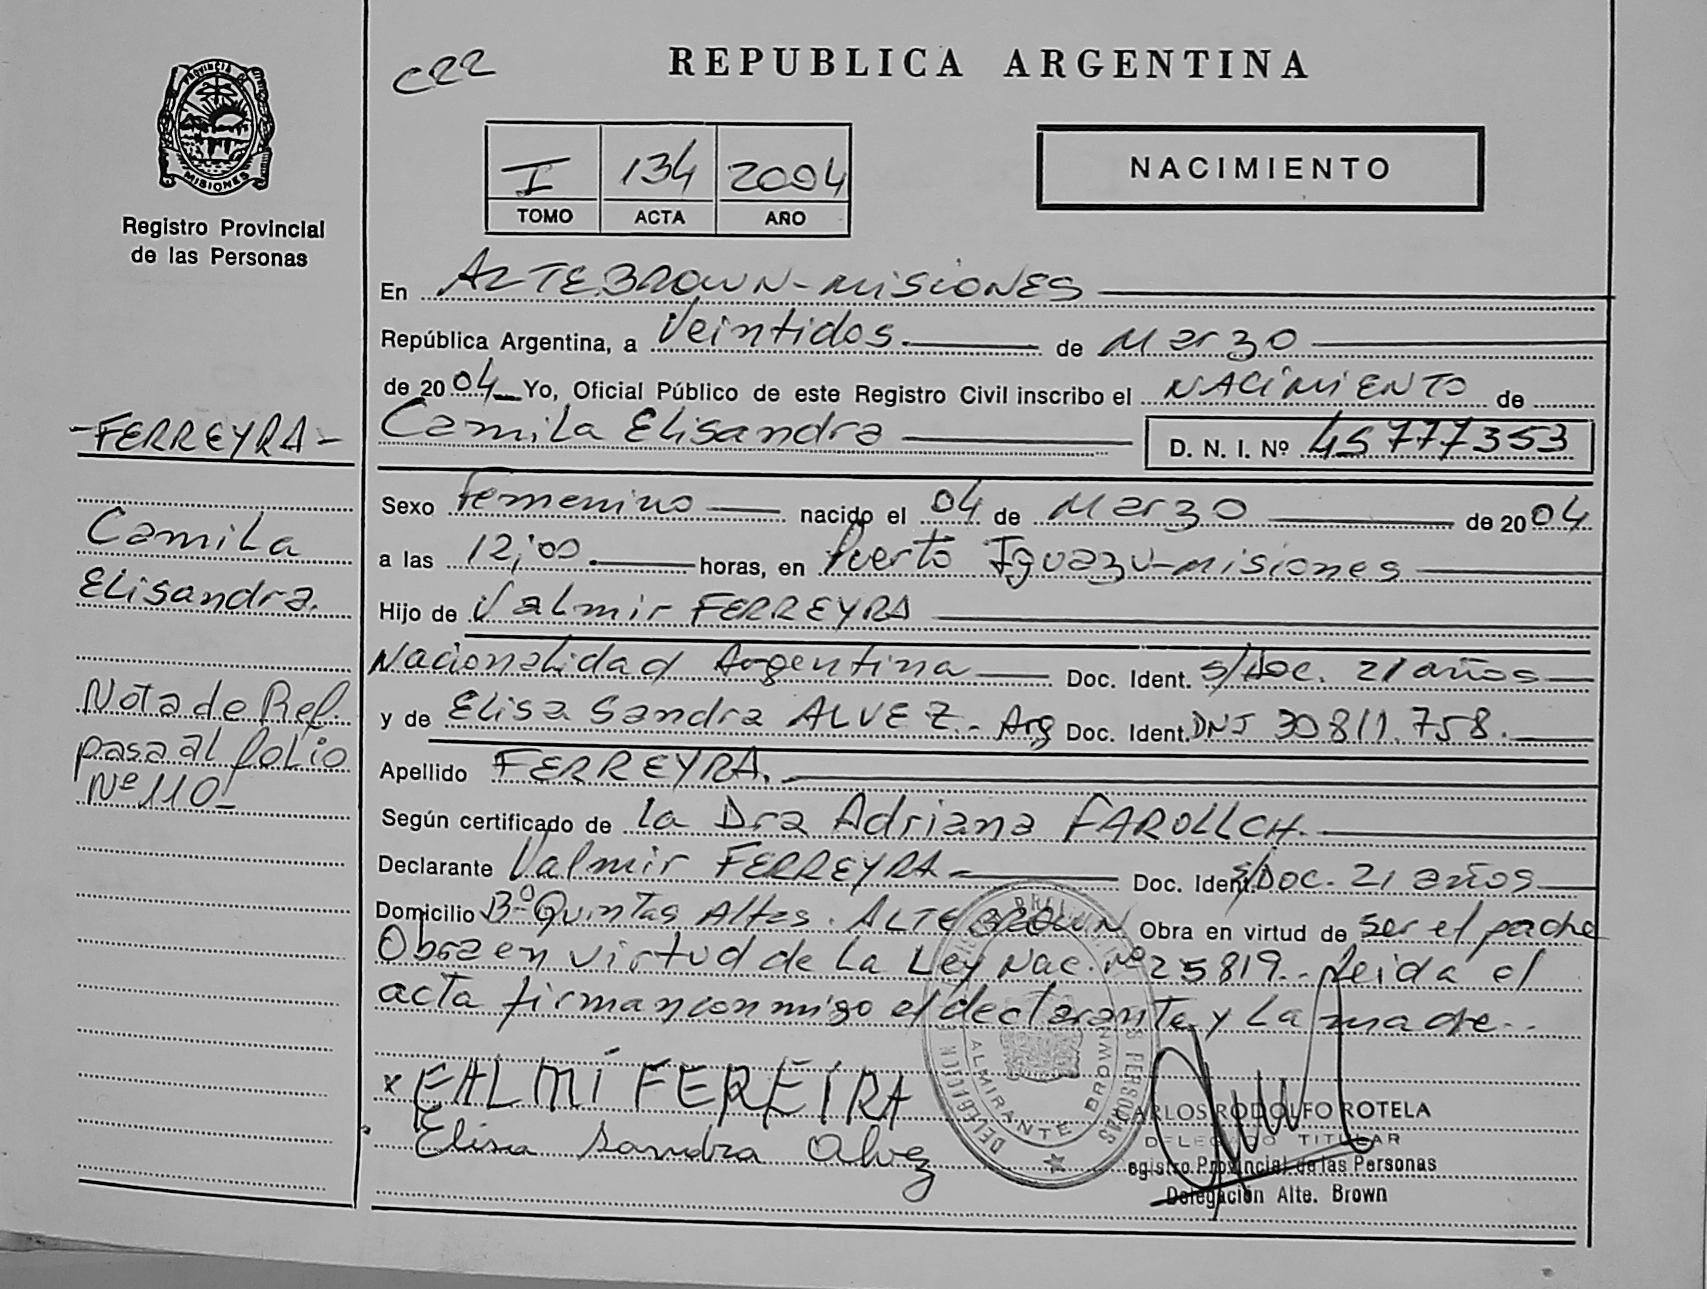 PROVINCIA DE
MISIONES
Registro Provincial
de las Personas
-FERREYRA-
Camila
Elisandra.
Nota de Ref.
pasa al folio
Nº 110-
C22
REPUBLICA ARGENTINA
I 134 2004
TOMO ACTA AÑO
NACIMIENTO
En ALTE BROWN-MISIONES
República Argentina, a Veintidos de Marzo
de 2004 Yo, Oficial Público de este Registro Civil inscribo el NACIMIENTO de
Camila Elisandra D. N. I. Nº 45777353
Sexo femenino nacido el 04 de Marzo de 2004
a las 12,00 horas, en Puerto Iguazu-Misiones
Hijo de Valmir FERREYRA
Nacionalidad Argentina Doc. Ident. s/Doc. 21 años
y de Elisa Sandra ALVEZ.- Arg Doc. Ident. DNI 30811.758.
Apellido FERREYRA.
Según certificado de la Dra Adriana
Declarante Valmir FERREYRA- Doc. Ident. s/Doc. 21 años
Domicilio Bº Quintas Altas. ALTE BROWN Obra en virtud de ser el padre
Obra en virtud de la Ley Nac. Nº 25819.- leida el
acta firman conmigo el declarante y la madre..
x FALMÍ FEREIRA
Elisa Sandra Alvez
DELEGACION ALMIRANTE BROWN
CARLOS RODOLFO ROTELA
DELEGADO TITULAR
Registro Provincial de las Personas
Delegación Alte. Brown